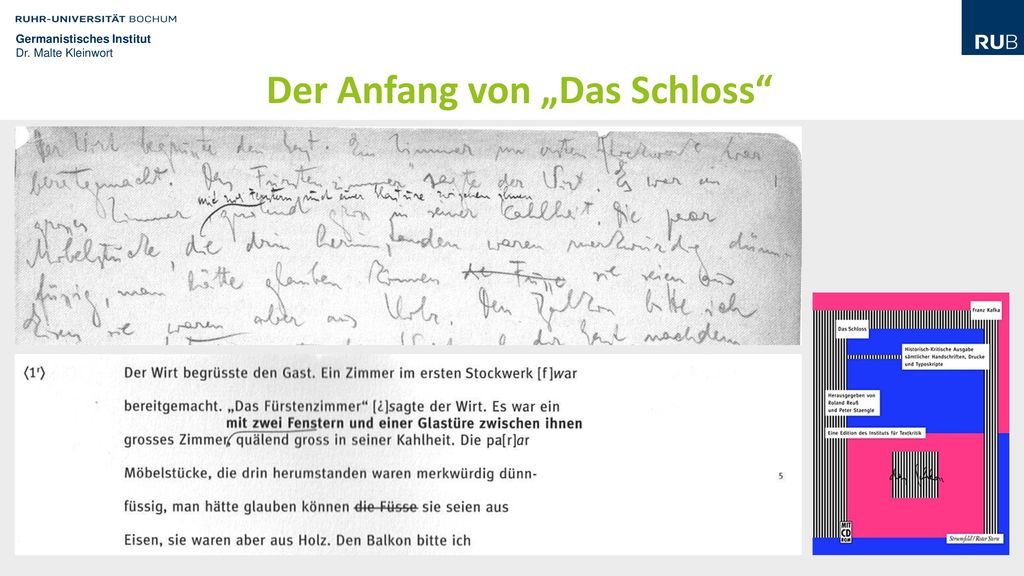 RUHR-UNIVERSITÄT BOCHUM
Germanistisches Institut
Dr. Malte Kleinwort
RUB
Der Anfang von „Das Schloss“
Der Wirt begrüsste den Gast. Ein Zimmer im ersten Stockwerk war
bereitgemacht. „Das Fürstenzimmer“ sagte der Wirt. Es war ein
mit zwei Fenstern und einer Glastüre zwischen ihnen
grosses Zimmer, quälend gross in seiner Kahlheit. Die paar
Möbelstücke, die drin herumstanden waren merkwürdig dünn-
füssig, man hätte glauben können die Füsse sie seien aus
Eisen, sie waren aber aus Holz. Den Balkon bitte ich
der Gast nachdem
⟨1r⟩
Der Wirt begrüsste den Gast. Ein Zimmer im ersten Stockwerk [f]war
bereitgemacht. „Das Fürstenzimmer“ [¿]sagte der Wirt. Es war ein
mit zwei Fenstern und einer Glastüre zwischen ihnen
grosses Zimmer, quälend gross in seiner Kahlheit. Die pa[r]ar
Möbelstücke, die drin herumstanden waren merkwürdig dünn-
5
füssig, man hätte glauben können die Füsse sie seien aus
Eisen, sie waren aber aus Holz. Den Balkon bitte ich
Franz Kafka
Das Schloss
Historisch-Kritische Ausgabe
sämtlicher Handschriften, Drucke
und Typoskripte
Herausgegeben von
Roland Reuß
und Peter Staengle
Eine Edition des Instituts für Textkritik
MIT
CD
ROM
Stroemfeld / Roter Stern